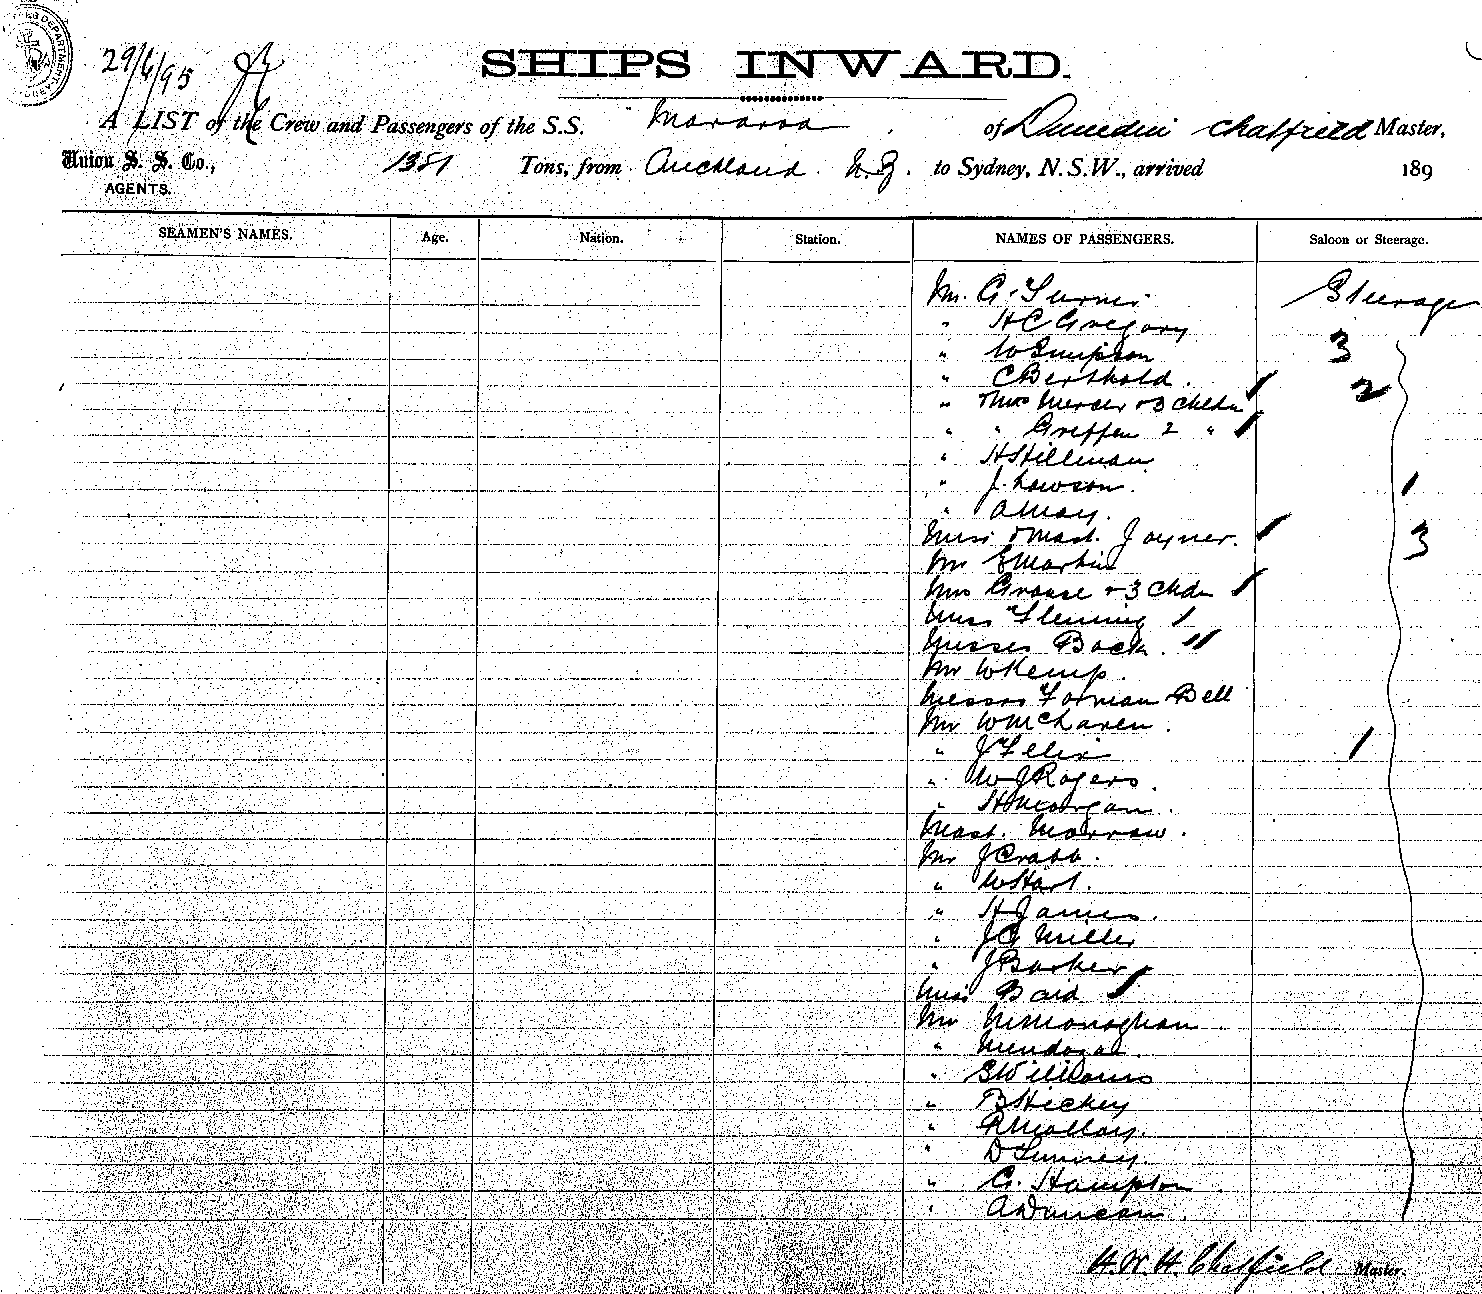 29/6/95
SHIPS INWARD.
A LIST of the Crew and Passengers of the S.S. Mararoa of Dunedin Chatfield Master,
Union S. S. Co., 1381 Tons, from Auckland N.Z. to Sydney, N.S.W., arrived 189
AGENTS.
SEAMEN'S NAMES. Age. Nation. Station. NAMES OF PASSENGERS. Saloon or Steerage.
Mr. G. Steerage
" H C Gregory
" W Simpson 3
" C Berthold. 2
" & Mrs Mercer & 3 Childn
" " Greffen 2 "
" H Hillman
" J. Lawson.
" A May.
Miss & Mast. Joyner. 3
Mr E Martin
Mrs Grosse & 3 Chdn
Miss Fleming
Misses Back.
Mr W Kemp.
Messrs Forman Bell
Mr W McLaren.
" J Felix
" W J Rogers.
" H Morgan.
Mast. Morrow.
Mr J Crabb.
" W Hart.
" H James.
" J G Miller
" J Barker
Miss Baird
Mr M Monaghan
" Mendoza
" S Williams
" B Hickey
" Molloy.
" D
" G. Hampton
" A Duncan.
H. W. H. Chatfield Master.